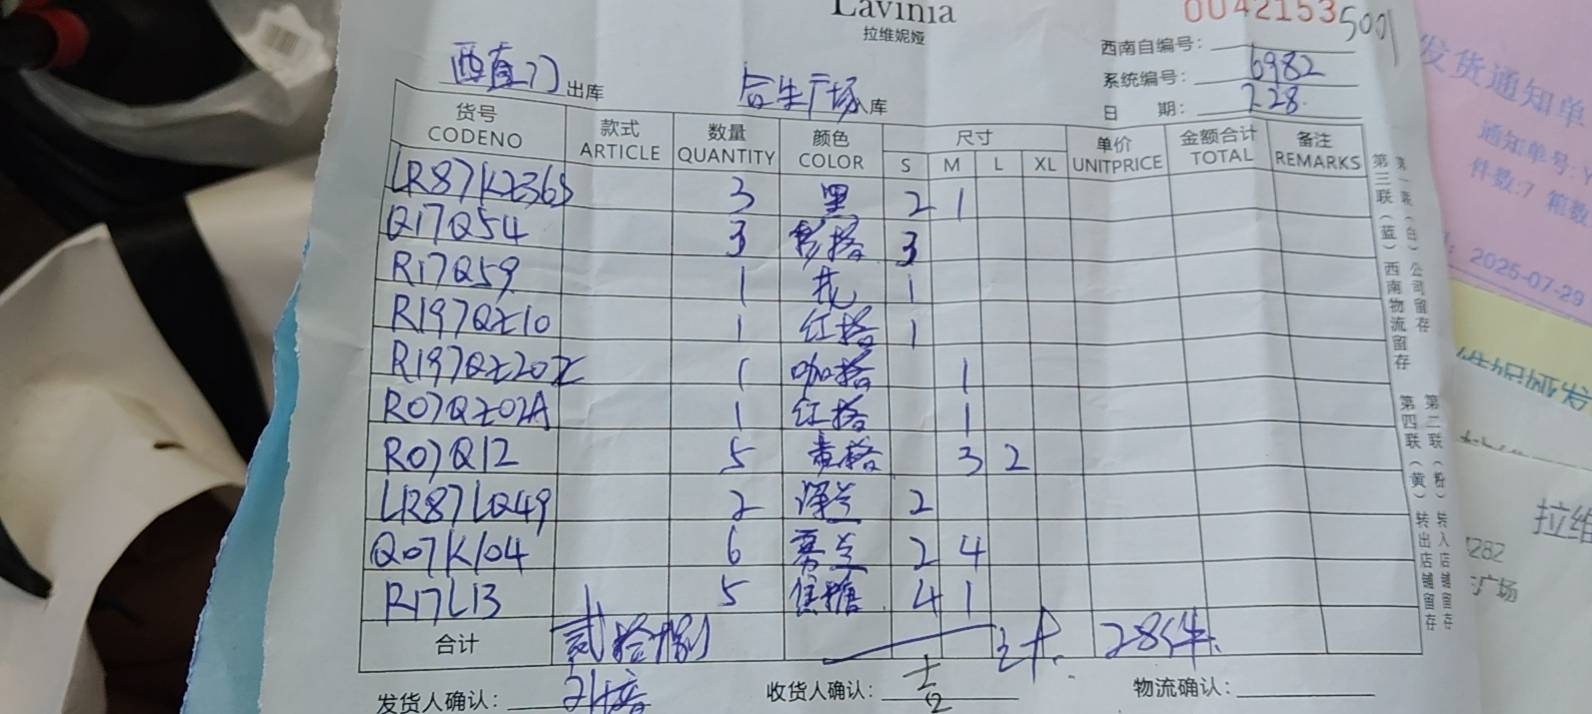 Lavinia
拉维妮娅
0042153
5001
西南自编号：
系统编号： 6982
日 期： 7.28.
西直门 出库 合生广场 库
货号 CODENO 款式 ARTICLE 数量 QUANTITY 颜色 COLOR 尺寸 S M L XL 单价 UNITPRICE 金额合计 TOTAL 备注 REMARKS
3 黑 2 1
Q17Q54 3 3
R17Q59 1 1
R197QZ10 1 红格 1
1 咖格 1
R07QZ02A 1 红格 1
R07Q12 5 3 2
LR87LQ49 2 2
Q07K104 6 雾兰 2 4
R17L13 5 焦糖 4 1
合计 贰拾捌 计. 28件.
发货人确认： 收货人确认： 物流确认：
第一联（白）公司留存
第三联（蓝）西南物流留存
第二联（粉）转入店铺留存
第四联（黄）转出店铺留存
发货通知单
通知单号:Y
件数:7 箱数
2025-07-29
拉维
282
广场